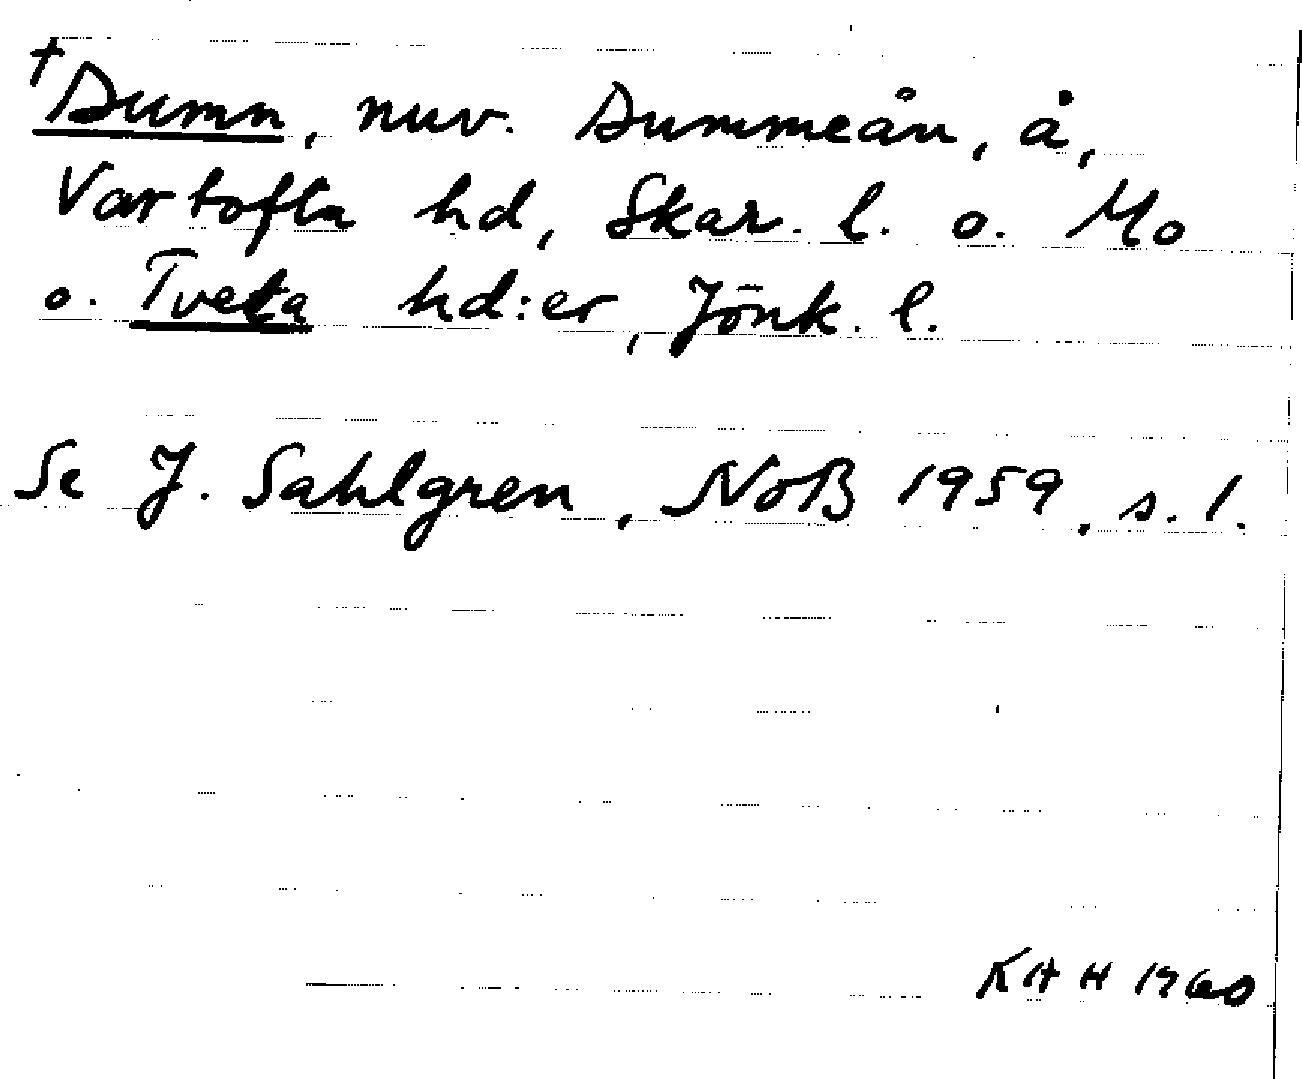 †Dumn, nuv. Dummeån, å,
Vartofta hd, Skar. l. o. Mo
o. Tveta hd:er, Jönk. l.
Se J. Sahlgren, NoB 1959, s. 1.
KAH 1960